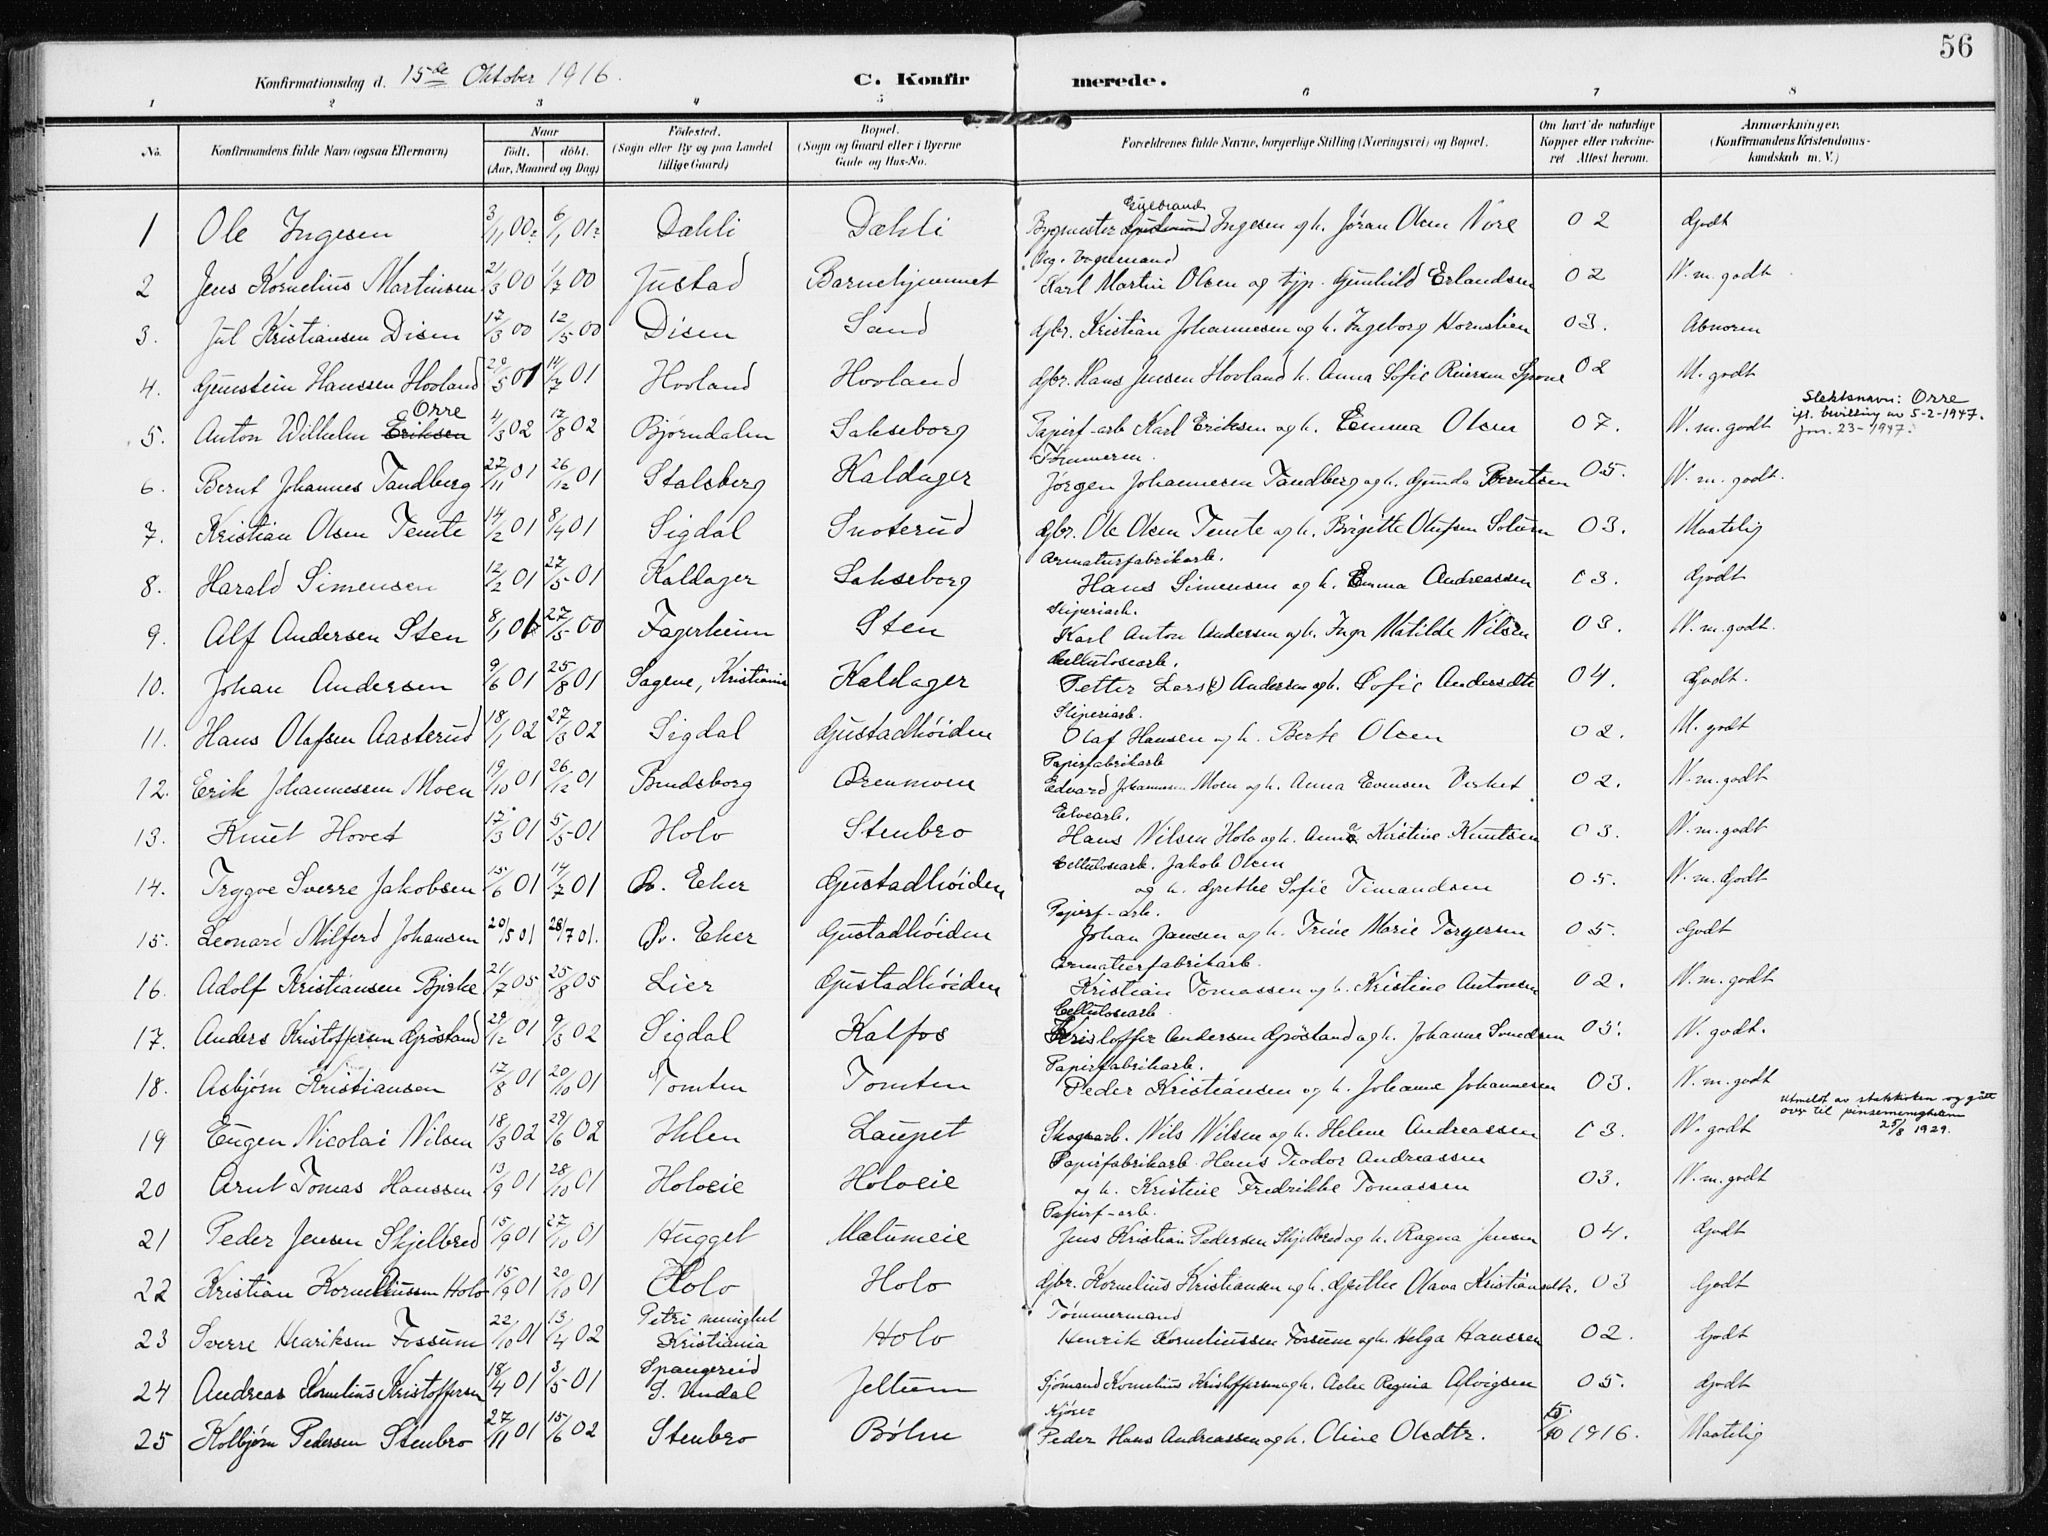 56
Konfirmationsdag d. 15de Oktober 1916. C. Konfirmerede.
1 2 3 4 5 6 7 8
No. Konfirmandens fulde Navn (ogsaa Efternavn) Naar født. døbt. (Aar, Maaned og Dag) Fødested. (Sogn eller By og paa Landet tillige Gaard) Bopæl. (Sogn og Gaard eller i Byerne Gade og Hus-No. Forældrenes fulde Navne, borgerlige Stilling (Næringsvei) og Bopæl. Om havt de naturlige Kopper eller vakcineret Attest herom. Anmærkninger. (Konfirmandens Kristendomskundskab m. V.)
1 Ole Ingesen 3/11 00 6/1 01 Dæhli Dæhli Bygmester Gulbrand Ingesen og h. Jøran Olsen Nore 02 Godt
2 Jens Kornelius Martinsen 21/3 00 1/7 00 Justad Barnehjemmet Karl Martin Olsen og tjp. Gunhild Erlandsen 02 N. m. godt
3. Jul Kristiansen Disen 17/3 00 12/5 00 Disen Sand Gbr. Kristian Johannesen og h. Ingeborg Hornslien 03. Abnorm
4. Gunstein Hanssen Hovland 20/5 01 14/7 01 Hovland Hovland Gbr. Hans Jensen Hovland h. Anna Sofie Reiersen 02 M. godt
5. Anton Wilhelm Eriksen Orre 4/3 02 17/8 02 Bjørndalen Sakseborg Papirf-arb Karl Eriksen og h. Emma Olsen 07. N. m. godt Slektsnavn: Orre ifl. bevilling av 5-2-1947. jnr. 23-1947.
6. Bernt Johannes Tandberg 27/11 01 26/12 01 Stalsberg Kaldager Tømmerm. Jørgen Johannesen Tandberg og h. Gunda Berntsen 05. N. m. godt.
7. Kristian Olsen Temte 14/2 01 8/4 01 Sigdal Snoterud Gbr. Ole Olsen Temte og h. Brigitte Olufsen Solum 03. Maatelig
8. Harald Simensen 12/2 01 27/5 01 Kaldager Sakseborg Armaturfabrikarb. Hans Simensen og h. Emma Andreassen 03. Godt
9. Alf Andersen Sten 8/1 01 27/5 00 Fagerheim Sten Sliperiarb. Karl Anton Andersen og h. Inga Matilde Nilsen 03. N. m. godt.
10. Johan Andersen 9/6 01 25/8 01 Sagene, Kristiania Kaldager Cellulosearb. Petter Lars(?) Andersen og h. Sofie Andersdtr 04. Godt.
11. Hans Olafsen Aasterud 18/1 02 27/3 02 Sigdal Gustadhøiden Sliperiarb. Olaf Hansen og h. Berte Olsen 02. M. godt
12. Erik Johannessen Moen 19/10 01 26/12 01 Bundsborg Orenmoen Papirfabrikarb Edvard Johannessen Moen og h. Anna Evensen Verket 02. N. m. godt
13. Knut Hovet 17/3 01 5/5 01 Holo Stenbro Elvearb. Hans Nilsen Holo og h. Anna Kristine Knutsen 03. N. m. godt
14. Trygve Sverre Jakobsen 15/6 01 14/7 01 Øv. Eker Gustadhøiden Cellulosearb. Jakob Olsen og h. Grethe Sofie Timandsen 05. N. m. Godt
15. Leonard Milferd Johansen 20/5 01 28/7 01. Øv. Eker Gustadhøiden Papirf-arb. Johan Jansen og h. Trine Marie Torgersen 05. Godt
16. Adolf Kristiansen Bjerke 21/7 05 25/8 05 Lier Gustadhøiden Armaturfabrikarb. Kristian Tomassen og h. Kristine Antonsen 02. N. m. godt
17. Anders Kristoffersen Grøsland 29/12 01 9/3 02 Sigdal Kalfos Cellulosearb Kristoffer Andersen Grøsland og h. Johanne Svendsen 05. N. godt.
18. Asbjørn Kristiansen 17/8 01 20/10 01 Tomten Tomten Papirfabrikarb. Peder Kristiansen og h. Johanne Johannesen 03. N. m. godt
19 Eugen Nicolai Nilsen 18/3 02 29/6 02 Ihlen Laupet Skogsarb. Nils Nilsen og h. Helene Andreassen 03. N. godt Utmeldt av statskirken og gått over til pinsemenigheten 25/8 1929.
20 Arnt Tomas Hanssen 13/9 01 28/10 01 Holoeie Holoeie Papirfabrikarb. Hans Teodor Andreassen og h. Kristine Fredrikke Tomassen 03. N. m. godt
21 Peder Jensen Skjelbred 15/9 01 27/10 01 Hugget Melumeie Papirf-arb. Jens Kristian Pedersen Skjelbred og h. Ragna Jensen 04. Godt
22 Kristian Korneliussen Holo 15/9 01 20/10 01 Holo Holo Gbr. Kornelius Kristiansen og h. Grethe Olava Kristiansdtr. 03 Godt
23 Sverre Henriksen Fossum 22/10 01 13/4 02 Petri menighet Kristiania Holo Tømmermand Henrik Korneliussen Fossum og h. Helga Hanssen 02. Godt
24 Andreas Kornelius Kristoffersen 18/4 01 3/5 01 Spangereid S. Undal Jeltum Sjømand Kornelius Kristoffersen og h. Regina Alvigsen 05. Godt
25 Kolbjørn Pedersen Stenbro 27/11 01 15/6 02 Stenbro Bøhn Kjører Peder Hans Andreassen og h. Oline Olsdtr. 5/10 1916. Maatelig